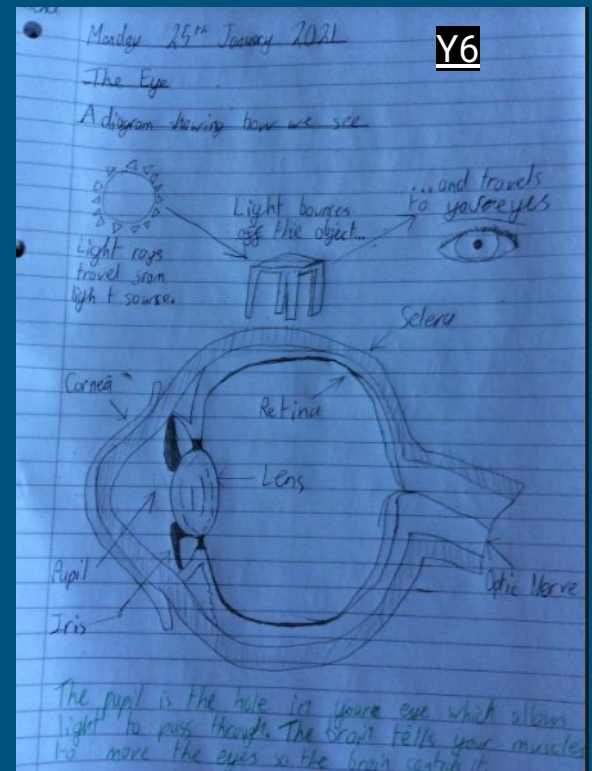 Y6
Monday 25th January 2021
The Eye
A diagram showing how we see
Light rays
travel from
light sourse.
Light bounces
off the object...
...and travels
to youre eyes
Sclera
Cornea
Retina
Lens
Pupil
Iris
Optic Nerve
The pupil is the hole in youre eye which allows
light to pass through. The brain tells your muscles
to move the eyes so the brain controls it.